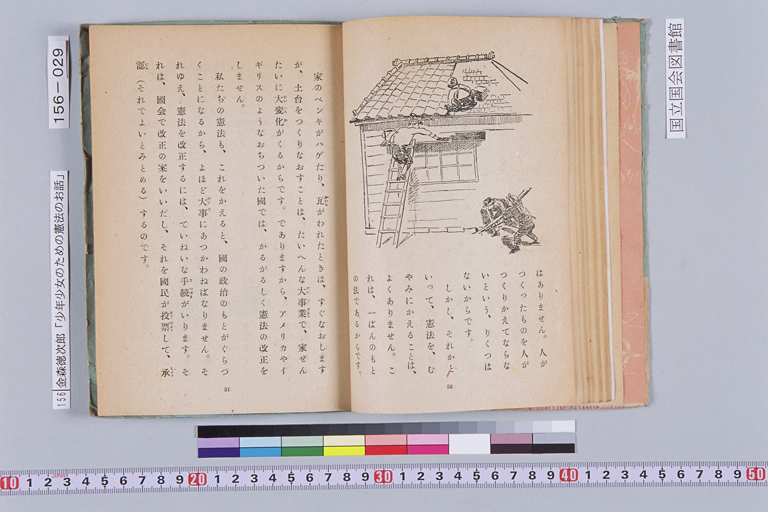 はありません。人が
つくったものを人が
つくりかえてならな
いという、りくつは
ないからです。
しかし、それかと
いって、憲法を、む
やみにかえることは、
よくありません。こ
れは、一ばんのもと
の法であるからです。
50
家のペンキがハゲたり、瓦がわれたときは、すぐなおします
が、土台をつくりなおすことは、たいへんな大事業で、家ぜん
たいに大変化がくるからです。でありますから、アメリカやイ
ギリスのようなおちついた國では、かるがるしく憲法の改正を
しません。
私たちの憲法も、これをかえると、國の政治のもとがぐらづ
くことになるから、よほど大事にあつかわねばなりません。そ
れゆえ、憲法を改正するには、ていねいな手続がいります。そ
れは、國会で改正の案をいいだし、それを國民が投票して、承
認（それでよいとみとめる）するのです。
51
国立国会図書館
156-029
156 金森徳次郎「少年少女のための憲法のお話」
10 1 2 3 4 5 6 7 8 9 20 1 2 3 4 5 6 7 8 9 30 1 2 3 4 5 6 7 8 9 40 1 2 3 4 5 6 7 8 9 50